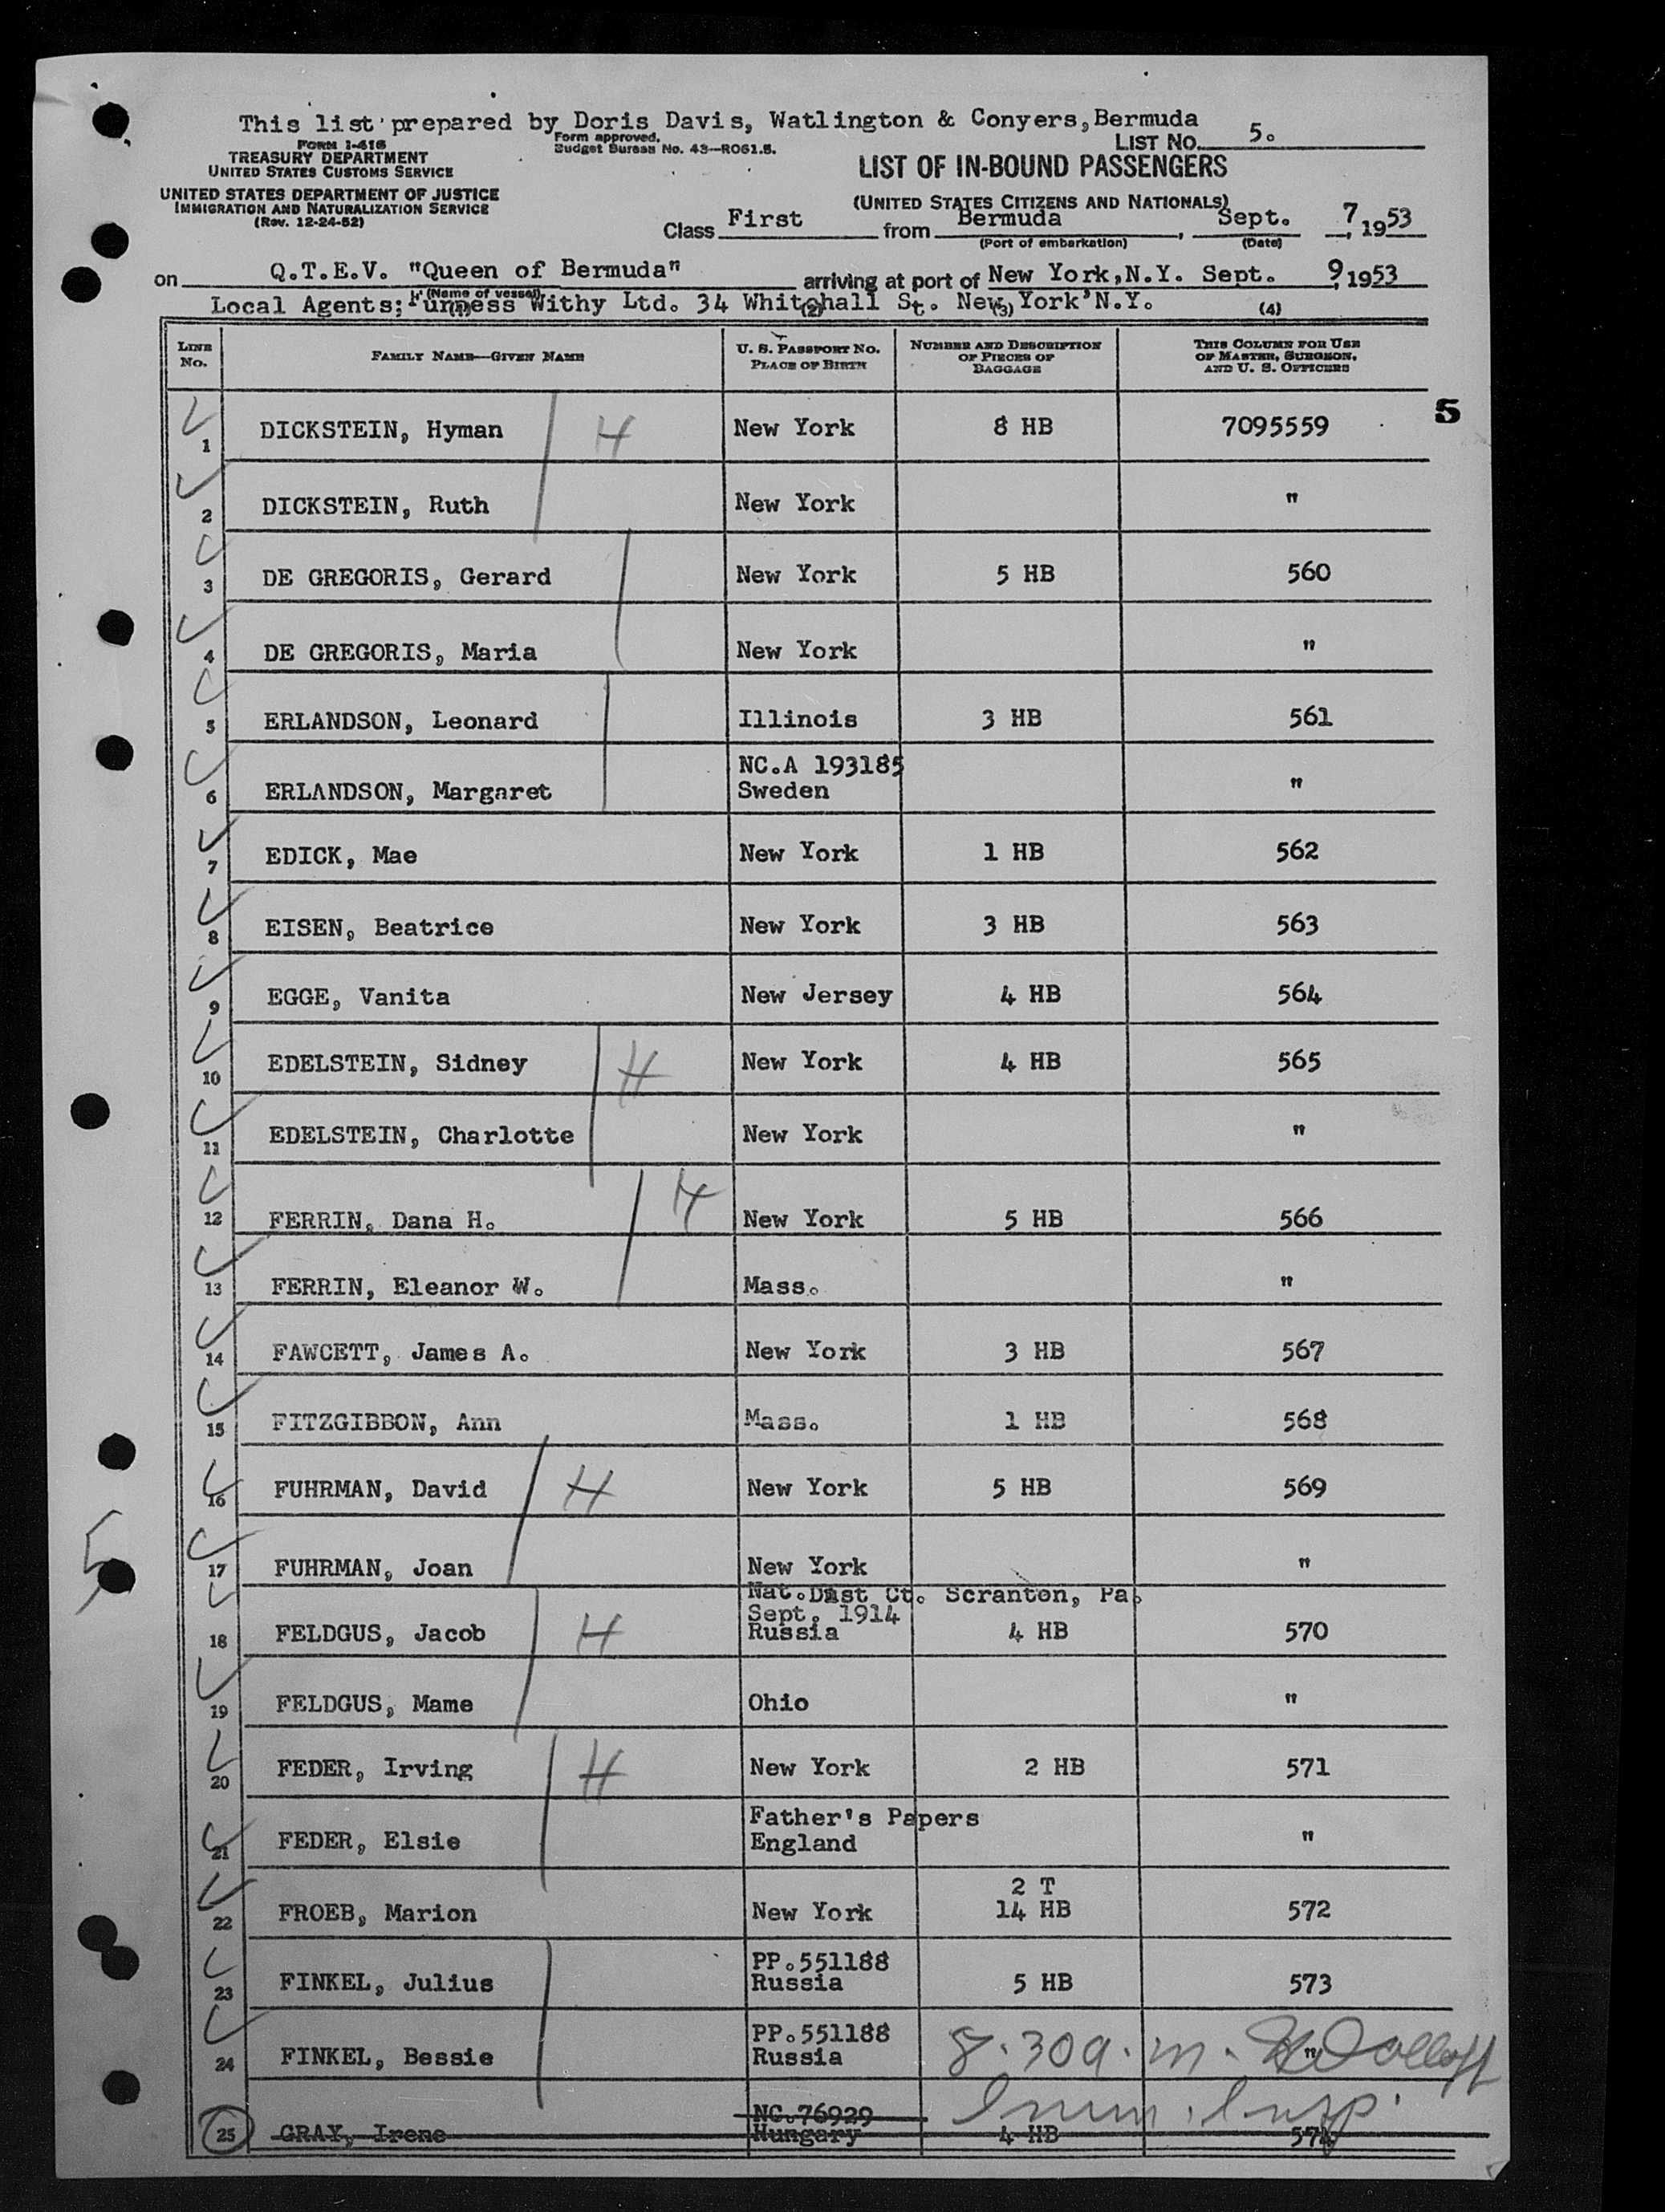 This list prepared by Doris Davis, Watlington & Conyers, Bermuda
FORM I-418
TREASURY DEPARTMENT
UNITED STATES CUSTOMS SERVICE
UNITED STATES DEPARTMENT OF JUSTICE
IMMIGRATION AND NATURALIZATION SERVICE
(Rev. 12-24-52)
Form approved.
Budget Bureau No. 43—R061.5.
LIST No. 5.
LIST OF IN-BOUND PASSENGERS
(UNITED STATES CITIZENS AND NATIONALS)
Class First from Bermuda, Sept. 7, 1953
(Port of embarkation) (Date)
on Q.T.E.V. "Queen of Bermuda" arriving at port of New York, N.Y. Sept. 9, 1953
(Name of vessel)
Local Agents; Furness Withy Ltd. 34 Whitehall St. New York N.Y.
(1) (2) (3) (4)
LINE No. FAMILY NAME—GIVEN NAME U. S. PASSPORT NO. PLACE OF BIRTH NUMBER AND DESCRIPTION OF PIECES OF BAGGAGE THIS COLUMN FOR USE OF MASTER, SURGEON, AND U. S. OFFICERS
5
1 DICKSTEIN, Hyman H New York 8 HB 7095559
2 DICKSTEIN, Ruth New York "
3 DE GREGORIS, Gerard New York 5 HB 560
4 DE GREGORIS, Maria New York "
5 ERLANDSON, Leonard Illinois 3 HB 561
6 ERLANDSON, Margaret NC.A 193185 Sweden "
7 EDICK, Mae New York 1 HB 562
8 EISEN, Beatrice New York 3 HB 563
9 EGGE, Vanita New Jersey 4 HB 564
10 EDELSTEIN, Sidney H New York 4 HB 565
11 EDELSTEIN, Charlotte New York "
12 FERRIN, Dana H. H New York 5 HB 566
13 FERRIN, Eleanor W. Mass. "
14 FAWCETT, James A. New York 3 HB 567
15 FITZGIBBON, Ann Mass. 1 HB 568
16 FUHRMAN, David H New York 5 HB 569
17 FUHRMAN, Joan New York "
5
Nat. Dist Ct. Scranton, Pa.
Sept. 1914
18 FELDGUS, Jacob H Russia 4 HB 570
19 FELDGUS, Mame Ohio "
20 FEDER, Irving H New York 2 HB 571
21 FEDER, Elsie Father's Papers England "
22 FROEB, Marion New York 2 T 14 HB 572
23 FINKEL, Julius PP.551188 Russia 5 HB 573
24 FINKEL, Bessie PP.551188 Russia "
8.30 a.m.
Imm. Insp.
25 GRAY, Irene NC.76929 Hungary 4 HB 574